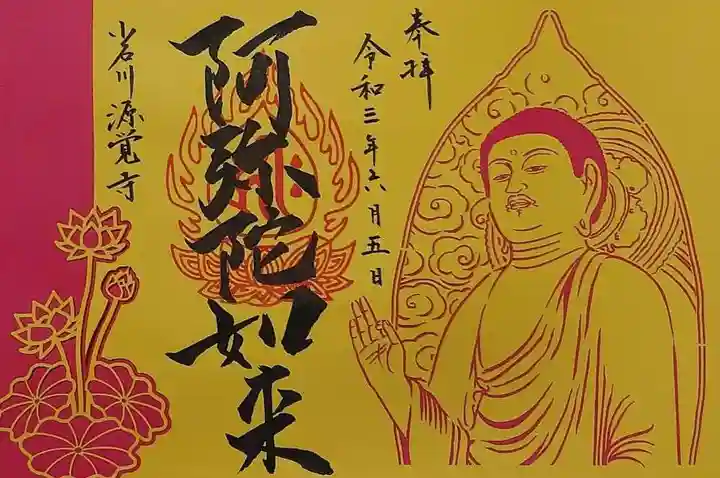 奉拝
令和三年六月五日
阿弥陀如来
小石川源覚寺